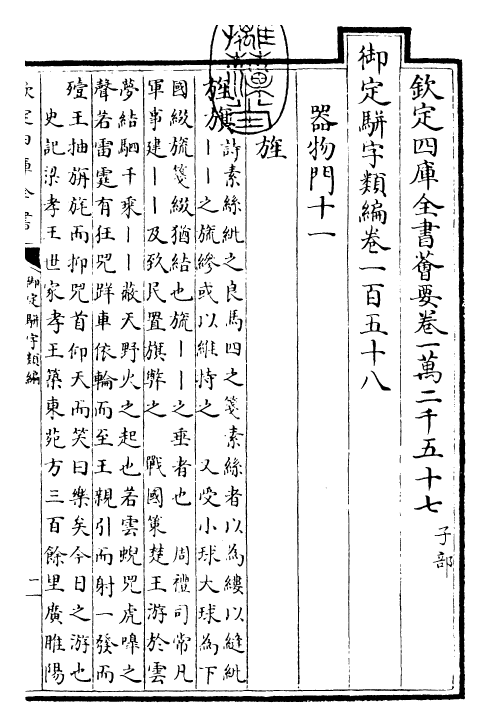 欽定四庫全書薈要卷一萬二千五十七 子部
御定駢字類編卷一百五十八
器物門十一
旌
旌旗 詩素絲紕之良馬四之箋素絲者以為縷以縫紕
丨丨之旒縿或以維持之 又受小球大球為下
國綴旒箋綴猶結也旒丨丨之垂者也 周禮司常凡
軍事建丨丨及致民置旗弊之 戰國策楚王游於雲
夢結駟千乘丨丨蔽天野火之起也若雲蜺兕虎嘷之
聲若雷霆有狂兕䍧車依輪而至王親引而射一發而
殪王抽旃旄而抑兕首仰天而笑曰樂矣今日之游也
史記梁孝王世家孝王築東苑方三百餘里廣睢陽
欽定四庫全書
御定駢字類編